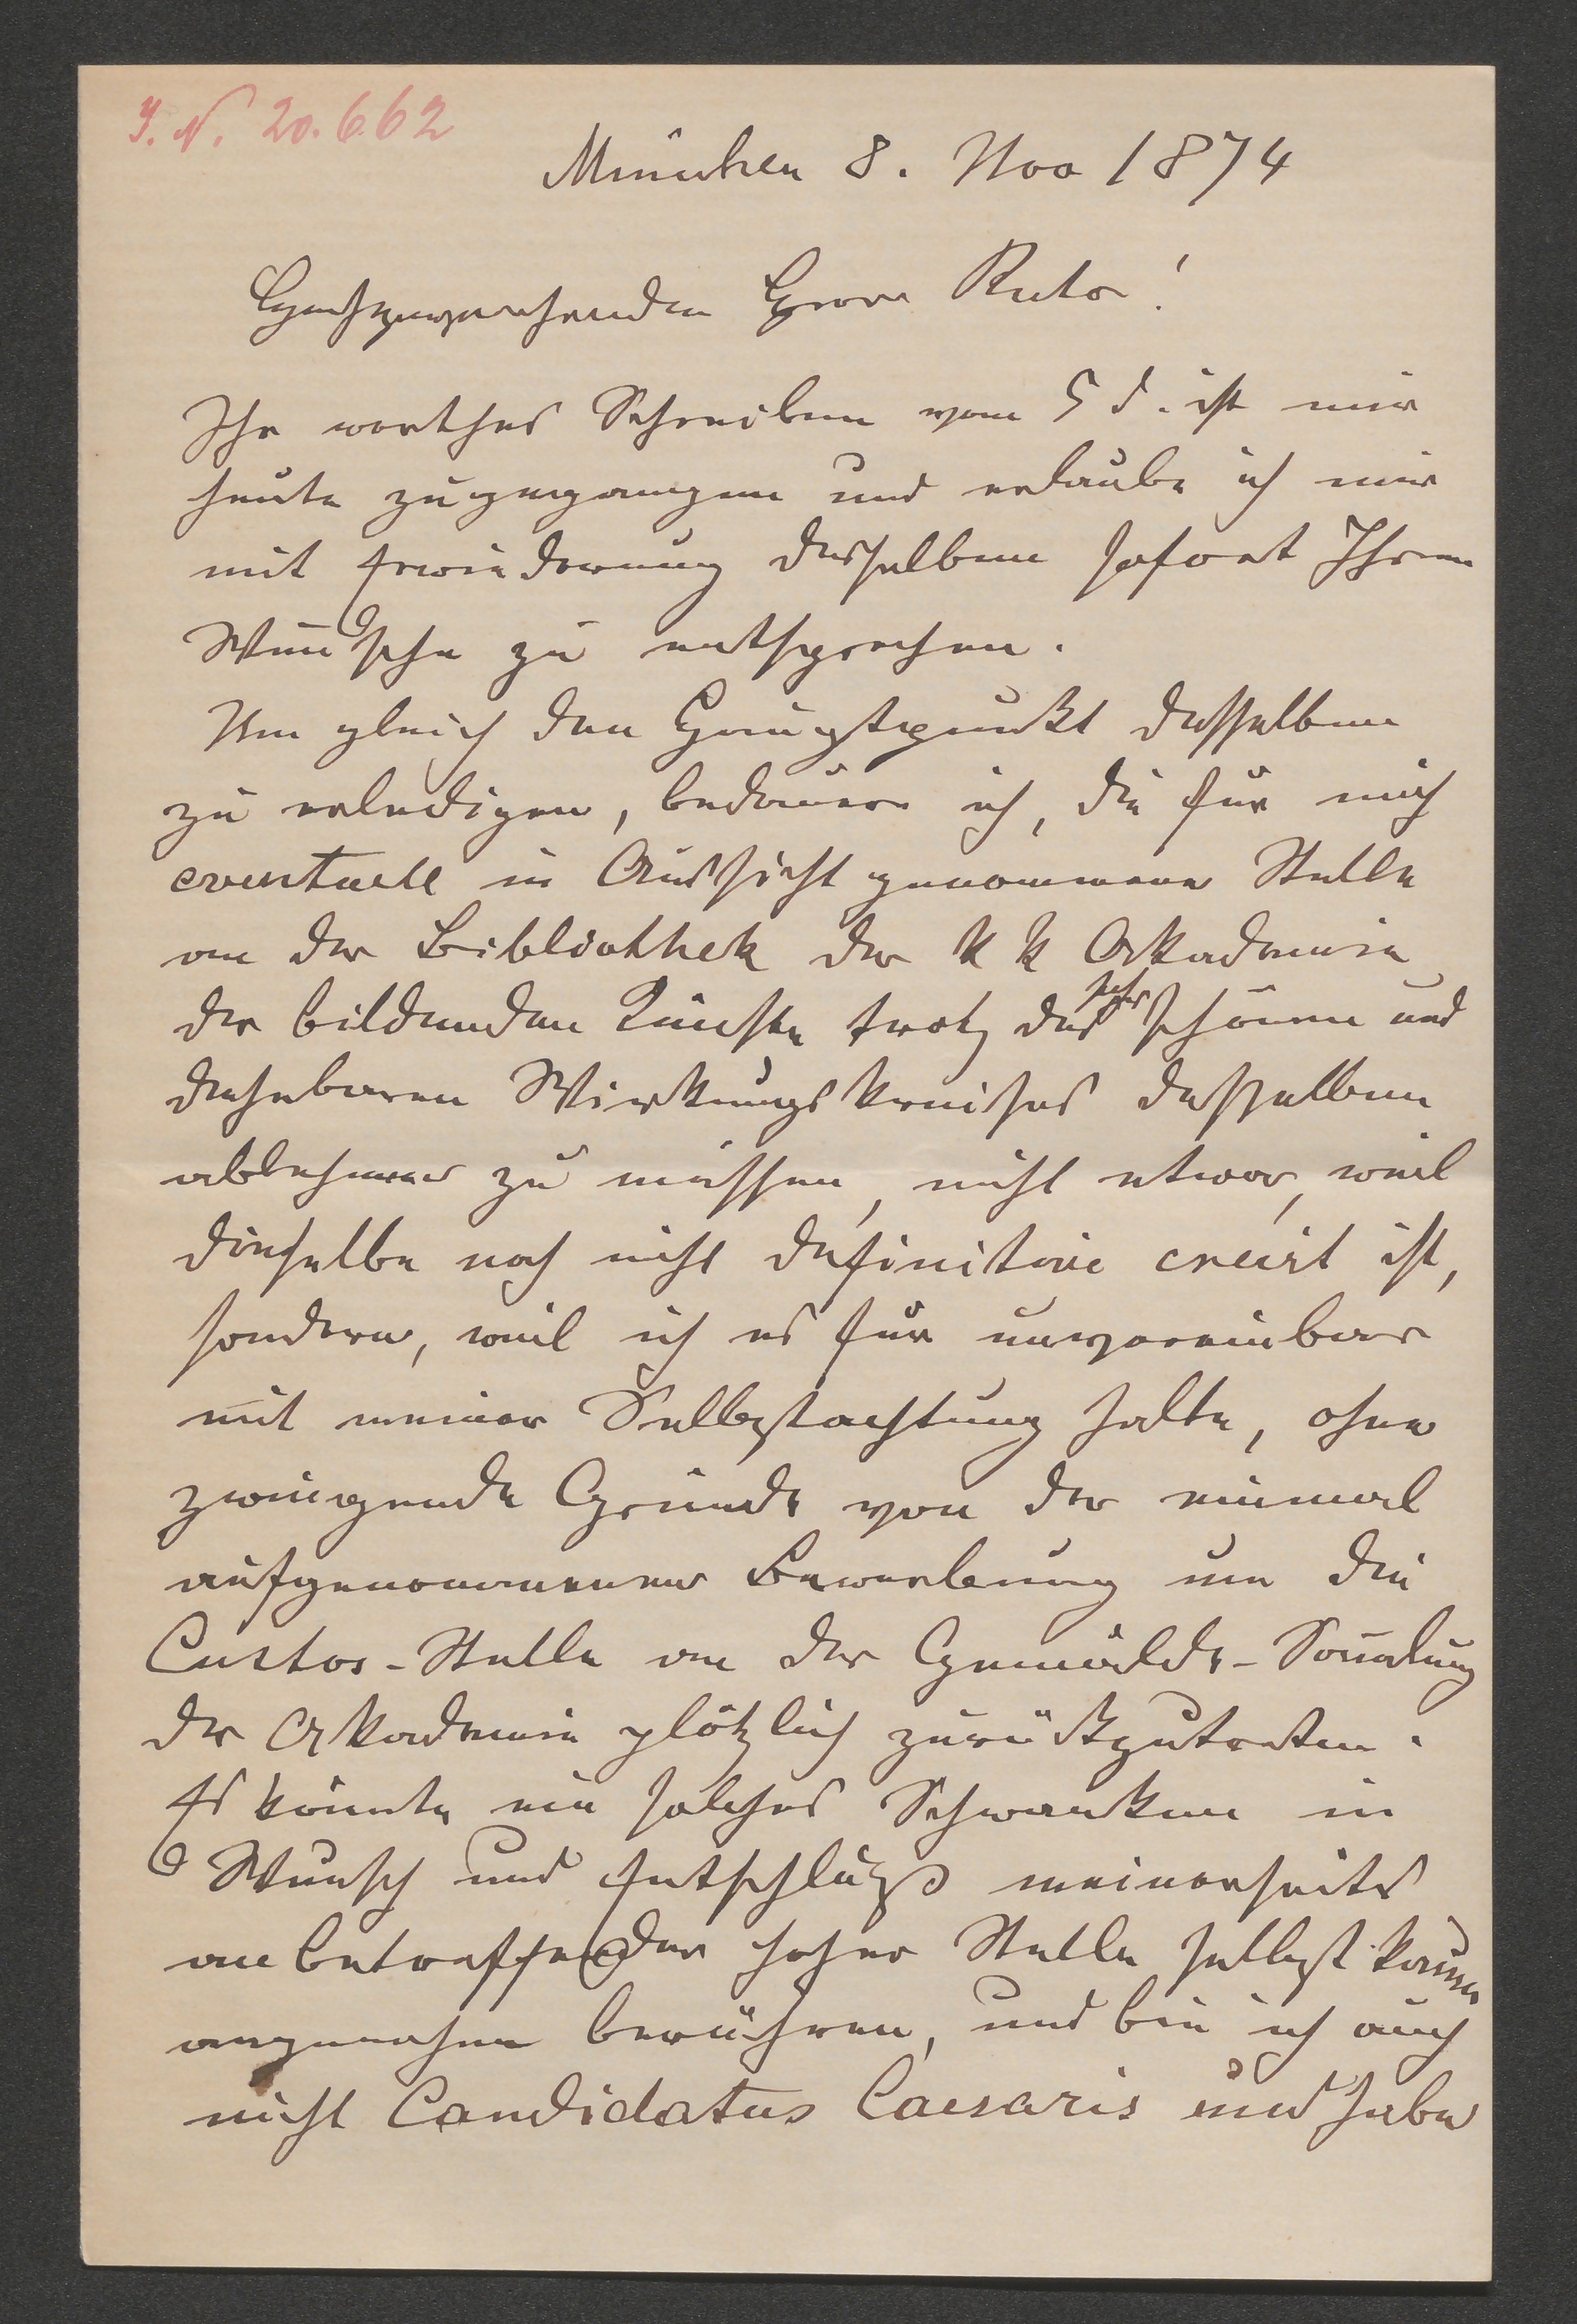 I. N. 20.662
München 8. Nov 1874
Hochzuverehrender Herr Rector!
Ihr werthes Schreiben vom 5 d. ist mir
heute zugegangen und erlaube ich mir
mit Erwiederung desselben sofort Ihrem
Wunsche zu entsprechen.
Um gleich den Hauptpunkt desselben
zu erledigen, bedauere ich, die für mich
eventuell in Aussicht genommene Stelle
an der Bibliothek der k k Akademie
der bildenden Künste trotz des sehr schönen und
dehnbaren Wirkungskreises desselben
ablehnen zu müssen, nicht etwa, weil
dieselbe noch nicht definitive creirt ist,
sondern, weil ich es für unvereinbar
mit meiner Selbstachtung halte, ohne
zwingende Gründe von der einmal
aufgenommenen Bewerbung um die
Custos-Stelle an der Gemälde-Sam̄lung
der Akademie plötzlich zurückzutreten.
Es könnte ein solches Schwanken in
Wunsch und Entschluß meinerseits
an betreffender hoher Stelle selbst kaum
angenehm berühren, und bin ich auch
nicht Candidatus Caesaris und habe